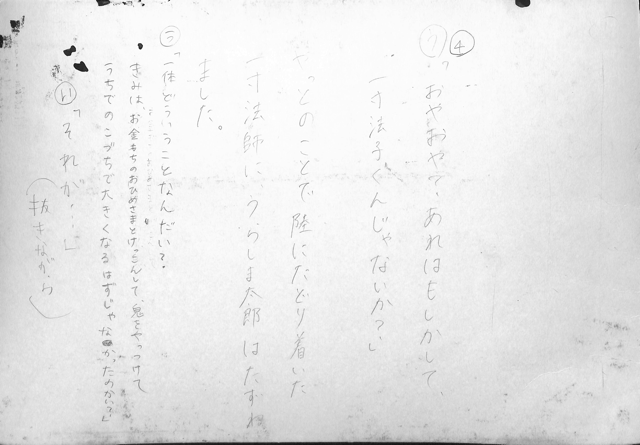 ④
㋒「おやおや？あれはもしかして、
一寸法子くんじゃないか？」
やっとのことで陸にたどり着いた
一寸法師に、うらしま太郎はたずね
ました。
㋒「一体どういうことなんだい？
きみは、お金もちのおひめさまとけっこんして、鬼をやっつけて
うちでのこづちで大きくなるはずじゃなかったのかい？」
㋑「それが・・」
（抜きながら）